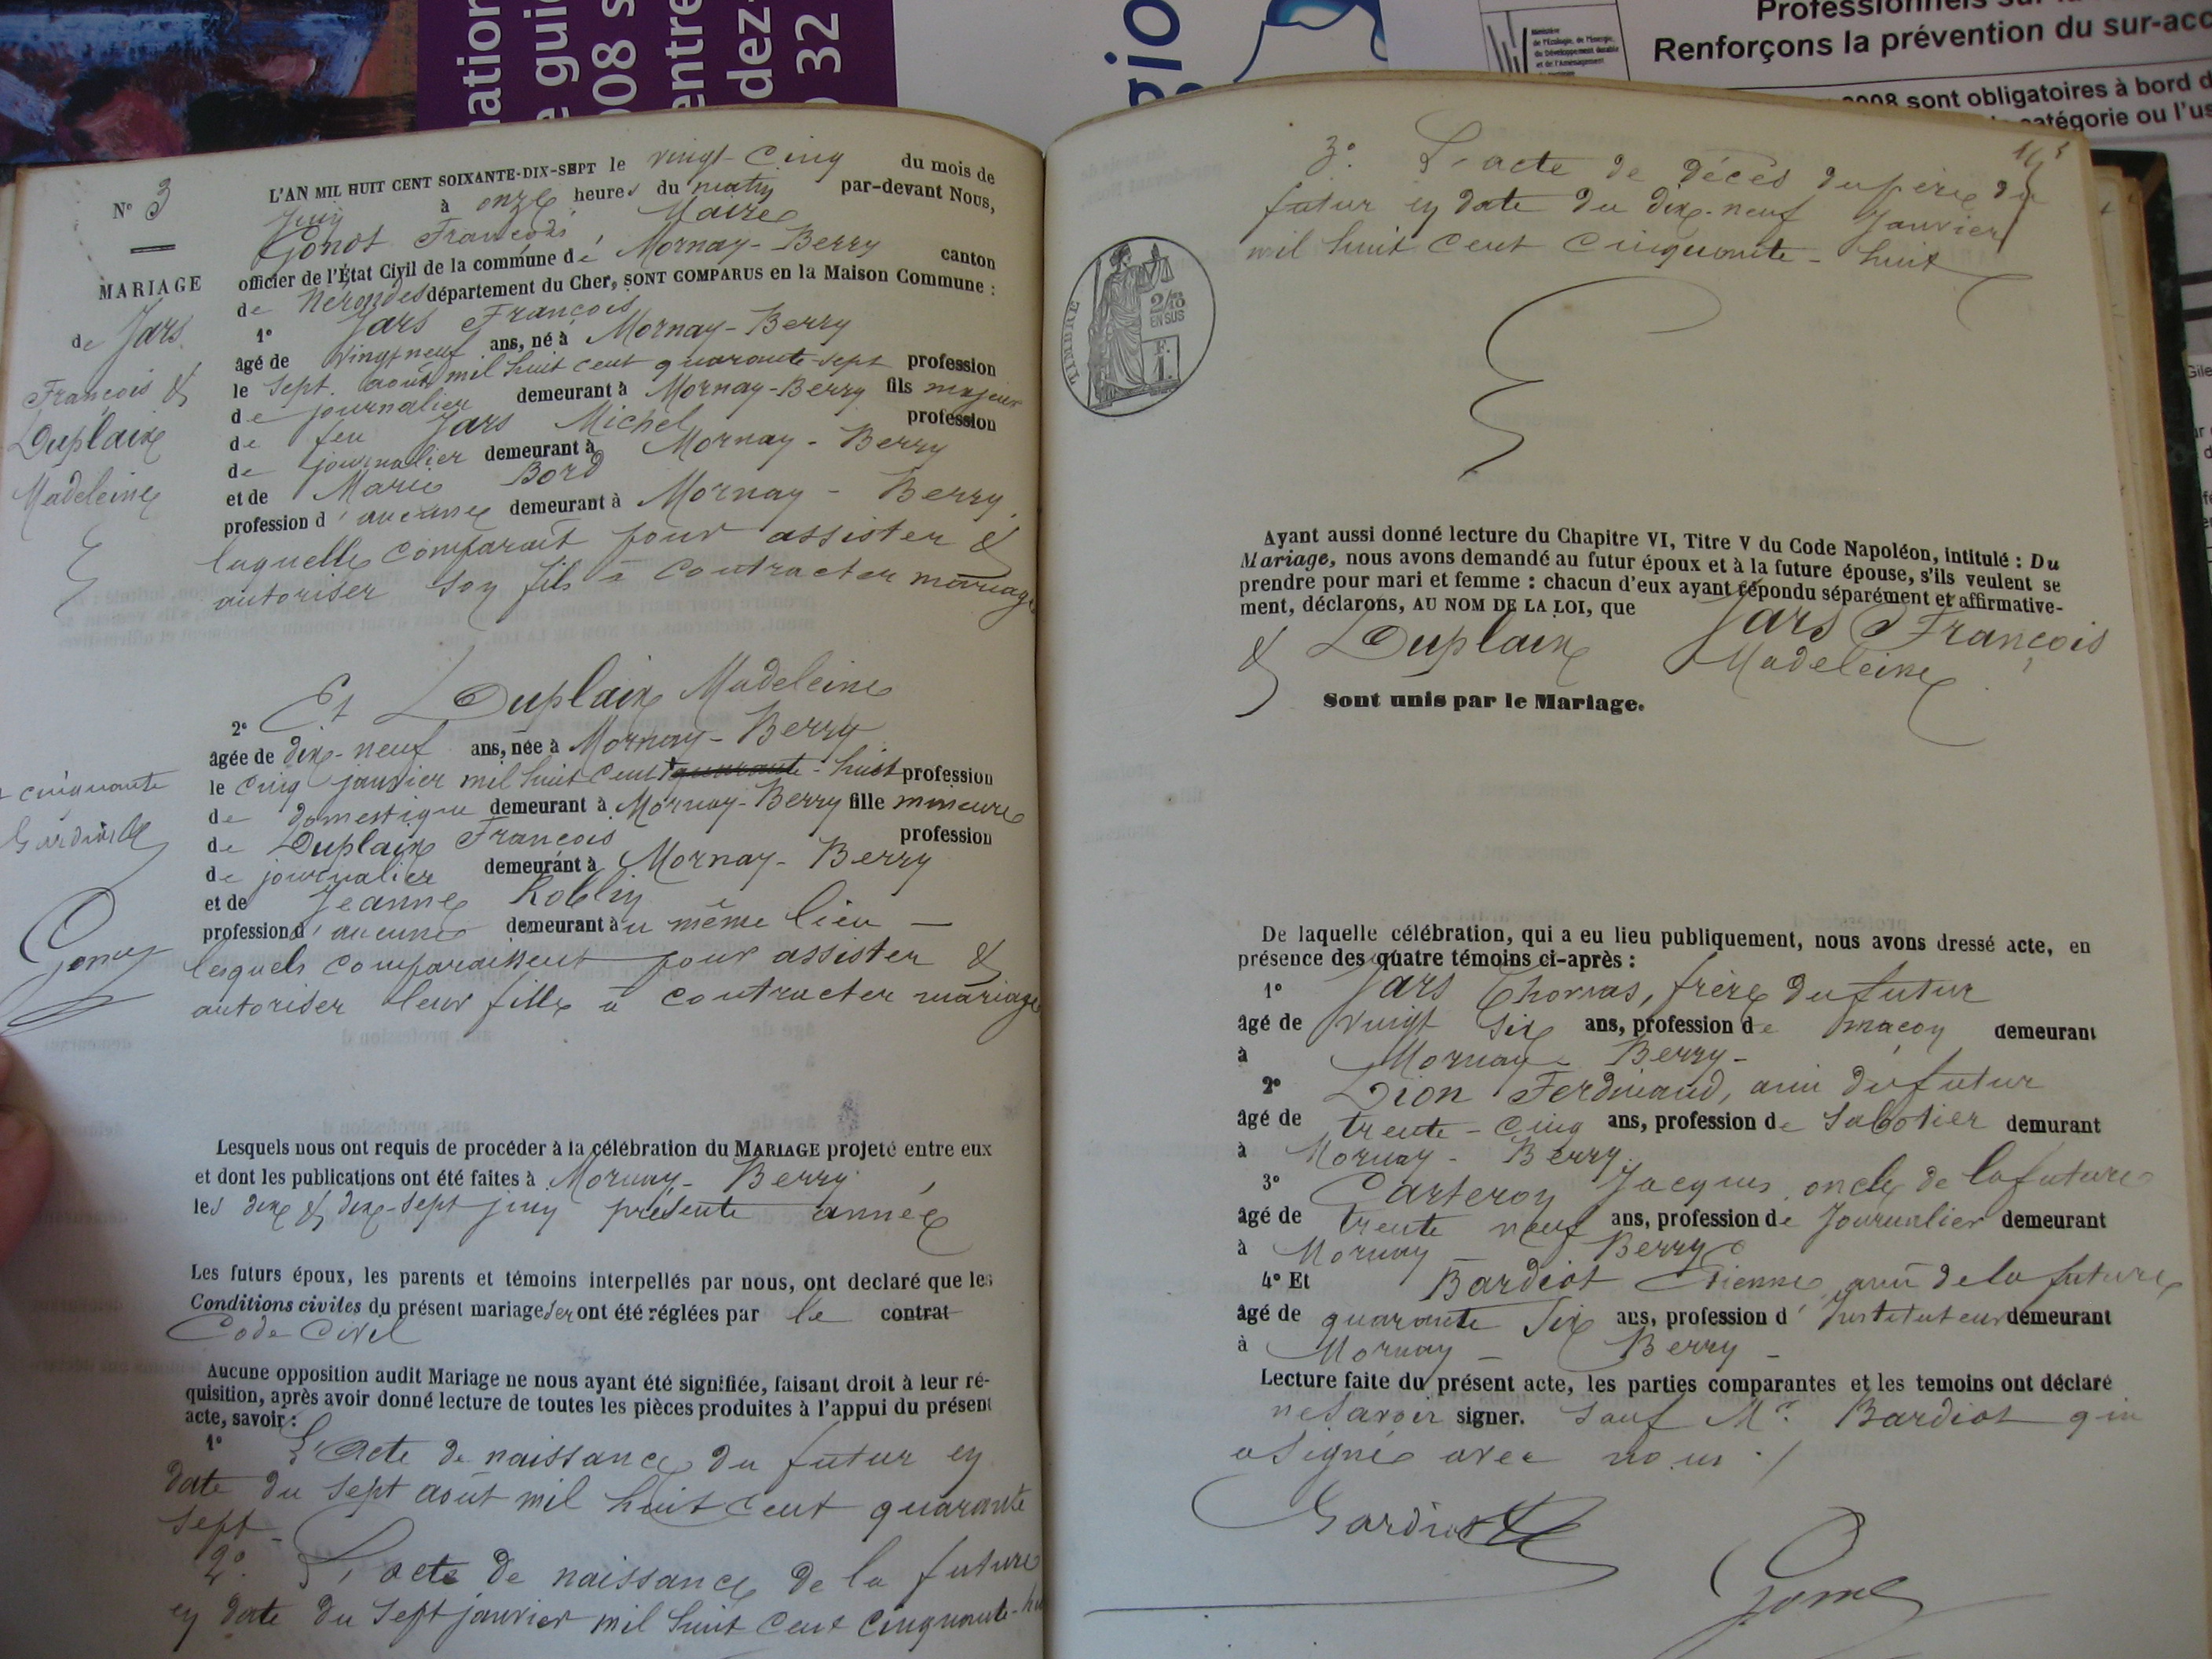 nation
e guid
008 s
entre
dez-
32
gio
Ministère
de l'Écologie, de l'Énergie,
du Développement durable
et de l'Aménagement
Professionnels
Renforçons la prévention du sur-acc
2008 sont obligatoires à bord d
catégorie ou l'us
N° 3
MARIAGE
de Jars
François &
Duplaix
Madeleine
L'AN MIL HUIT CENT SOIXANTE-DIX-SEPT le vingt-cinq du mois de
Juin à onze heures du matin par-devant Nous,
François, Maire
officier de l'État Civil de la commune de Mornay-Berry canton
de Nérondes département du Cher, SONT COMPARUS en la Maison Commune :
1° Jars François
âgé de vingt neuf ans, né à Mornay-Berry
le sept août mil huit cent quarante sept profession
de journalier demeurant à Mornay-Berry fils majeur
de feu Jars Michel profession
de journalier demeurant à Mornay-Berry
et de Marie Bord
profession d'aucune demeurant à Mornay-Berry.
laquelle comparaît pour assister &
autoriser son fils à contracter mariage
2° Et Duplaix Madeleine
âgée de dix-neuf ans, née à Mornay-Berry
le cinq janvier mil huit cent quarante-huit profession
+ cinquante
de domestique demeurant à Mornay-Berry fille mineure
de Duplaix François profession
de journalier demeurant à Mornay-Berry
et de Jeanne Roblin
profession d'aucune demeurant àu même lieu —
lesquels comparaissent pour assister &
autoriser leur fille à contracter mariage
Lesquels nous ont requis de procéder à la célébration du MARIAGE projeté entre eux
et dont les publications ont été faites à Mornay-Berry,
les dix & dix-sept juin présente année
Les futurs époux, les parents et témoins interpellés par nous, ont declaré que les
Conditions civiles du présent mariage seront été réglées par le contrat
Code Civil
Aucune opposition audit Mariage ne nous ayant été signifiée, faisant droit à leur ré-
quisition, après avoir donné lecture de toutes les pièces produites à l'appui du présent
acte, savoir :
1° L'acte de naissance du futur en
date du sept août mil huit cent quarante
sept -
2° L'acte de naissance de la future
en date du sept janvier mil huit cent cinquante-hu
3° L'acte de décès du père du
futur en date du dix-neuf Janvier
mil huit cent cinquante-huit
TIMBRE
2/10
EN SUS
F.
1.
Ayant aussi donné lecture du Chapitre VI, Titre V du Code Napoléon, intitulé : Du
Mariage, nous avons demandé au futur époux et à la future épouse, s'ils veulent se
prendre pour mari et femme : chacun d'eux ayant répondu séparément et affirmative-
ment, déclarons, AU NOM DE LA LOI, que Jars François
& Duplaix Madeleine
Sont unis par le Mariage.
De laquelle célébration, qui a eu lieu publiquement, nous avons dressé acte, en
présence des quatre témoins ci-après :
1° Jars Thomas, frère du futur
âgé de vingt six ans, profession de maçon demeurant
à Mornay-Berry-
2° Dion Ferdinand, ami du futur
âgé de trente-cinq ans, profession de Sabotier demurant
à Mornay-Berry.
3° Carteron Jacques, oncle de la future
âgé de trente neuf ans, profession de Journalier demeurant
à Mornay - Berry
4° Et Bardiot Etienne, ami de la future
âgé de quarante six ans, profession d'Instituteur demeurant
à Mornay - Berry -
Lecture faite du présent acte, les parties comparantes et les temoins ont déclaré
ne savoir signer. sauf Mr. Bardiot qui
a signé avec nous ./
Bardiot